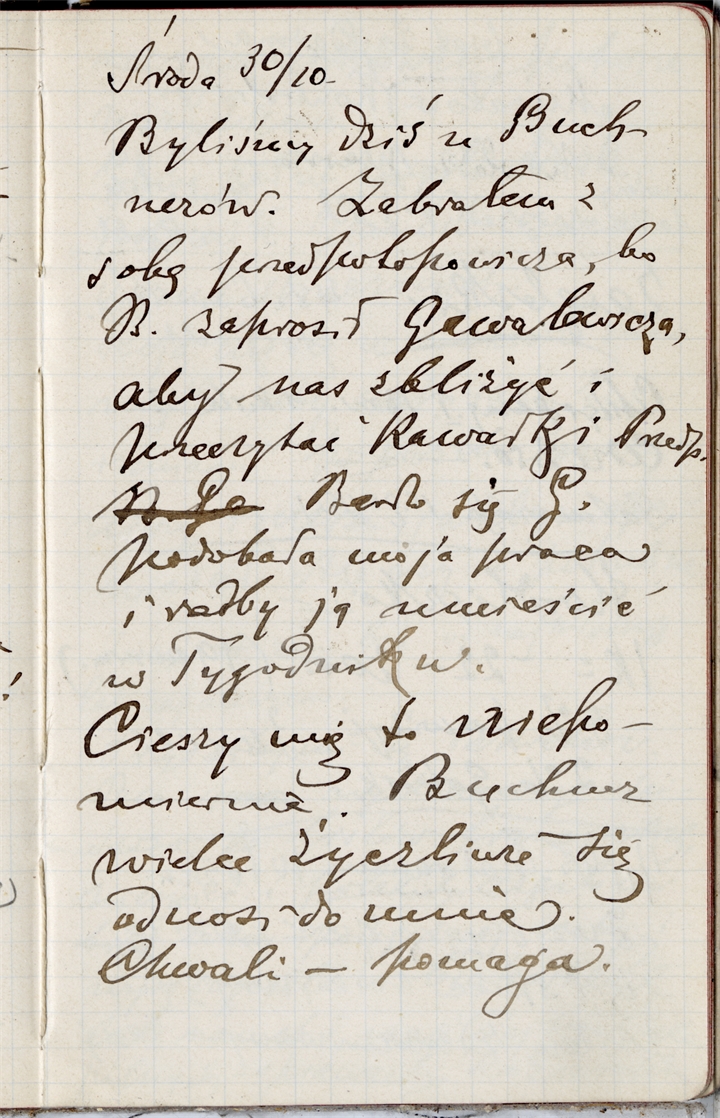 Środa 30/10
Byliśmy dziś u Buch-
nerów. Zabrałem z
sobą przedpotopowicza, bo
B. zaprosił Gawalewicza,
aby nas zbliżyć i
przeczytać kawałki Przedp.
Bardo się G.
podobała moja praca
i radby ją umieścić
w Tygodniku.
Cieszy mię to niepo-
miernie. Buchner
wielce życzliwie się
odnosi do mnie.
Chwali – pomaga.